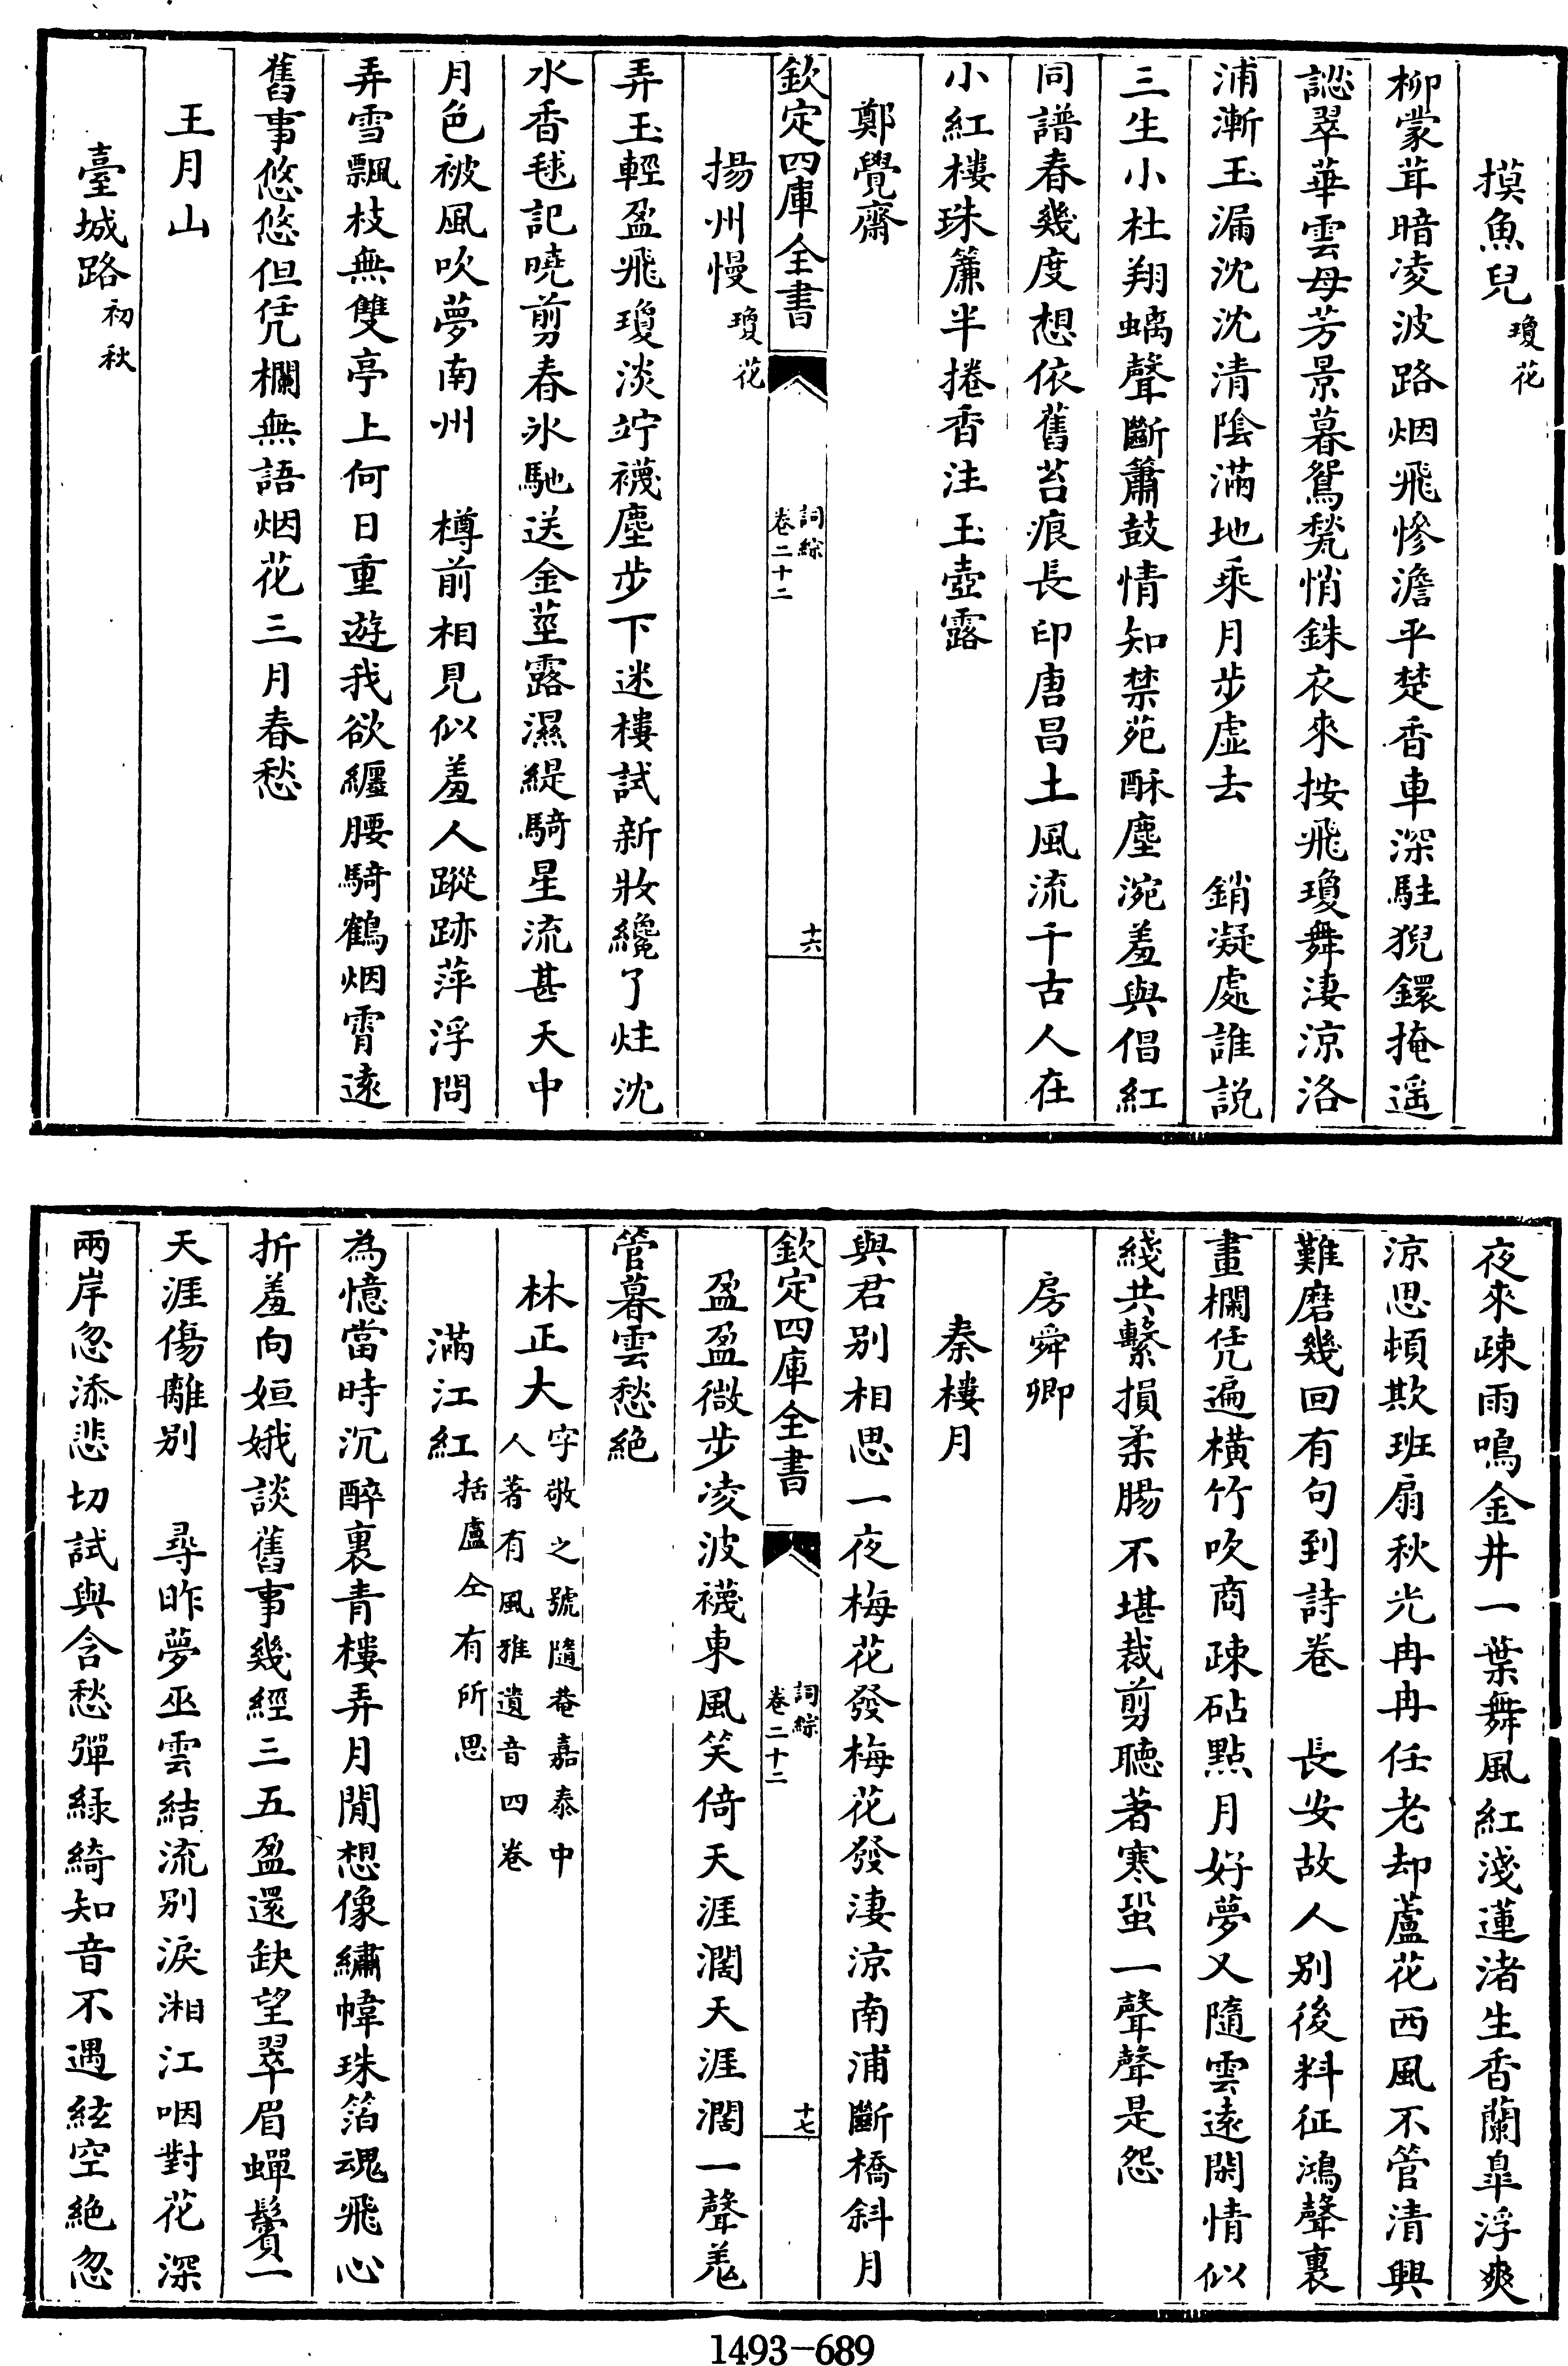 摸魚兒瓊花
柳蒙茸暗凌波路烟飛慘澹平楚香車深駐猊鐶掩遥
認翠華雲母芳景暮鴛甃悄銖衣來按飛瓊舞淒涼洛
浦漸玉漏沈沈清陰滿地乘月步虛去　銷凝處誰説
三生小杜翔螭聲斷簫鼓情知禁苑酥塵涴羞與倡紅
同譜春幾度想依舊苔痕長印唐昌土風流千古人在
小紅樓珠簾半捲香注玉壺露
鄭覺齋
欽定四庫全書
詞綜
卷二十二
十六
揚州慢瓊花
弄玉輕盈飛瓊淡竚襪塵步下迷樓試新妝纔了炷沈
水香毬記曉剪春氷馳送金莖露濕緹騎星流甚天中
月色被風吹夢南州　樽前相見似羞人蹤跡萍浮問
弄雪飄枝無雙亭上何日重遊我欲纏腰騎鶴烟霄遠
舊事悠悠但凭欄無語烟花三月春愁
王月山
臺城路初秋
夜來疎雨鳴金井一葉舞風紅淺蓮渚生香蘭臯浮爽
涼思頓欺班扇秋光冉冉任老却蘆花西風不管清興
難磨幾回有句到詩卷　長安故人别後料征鴻聲裏
畫欄凭遍橫竹吹商疎砧點月好夢又隨雲遠閑情似
綫共繫損柔腸不堪裁剪聽著寒蛩一聲聲是怨
房舜卿
秦樓月
與君别相思一夜梅花發梅花發淒涼南浦斷橋斜月
欽定四庫全書
詞綜
卷二十二
十七
盈盈微步凌波襪東風笑倚天涯濶天涯濶一聲羗
管暮雲愁絶
林正大字敬之號隨菴嘉泰中
人著有風雅遺音四卷
滿江紅括盧仝有所思
為憶當時沉醉裏青樓弄月閒想像繡幃珠箔魂飛心
折羞向姮娥談舊事幾經三五盈還缺望翠眉蟬鬢一
天涯傷離别　尋昨夢巫雲結流别淚湘江咽對花深
兩岸忽添悲切試與含愁彈緑綺知音不遇絃空絶忽
1493-689